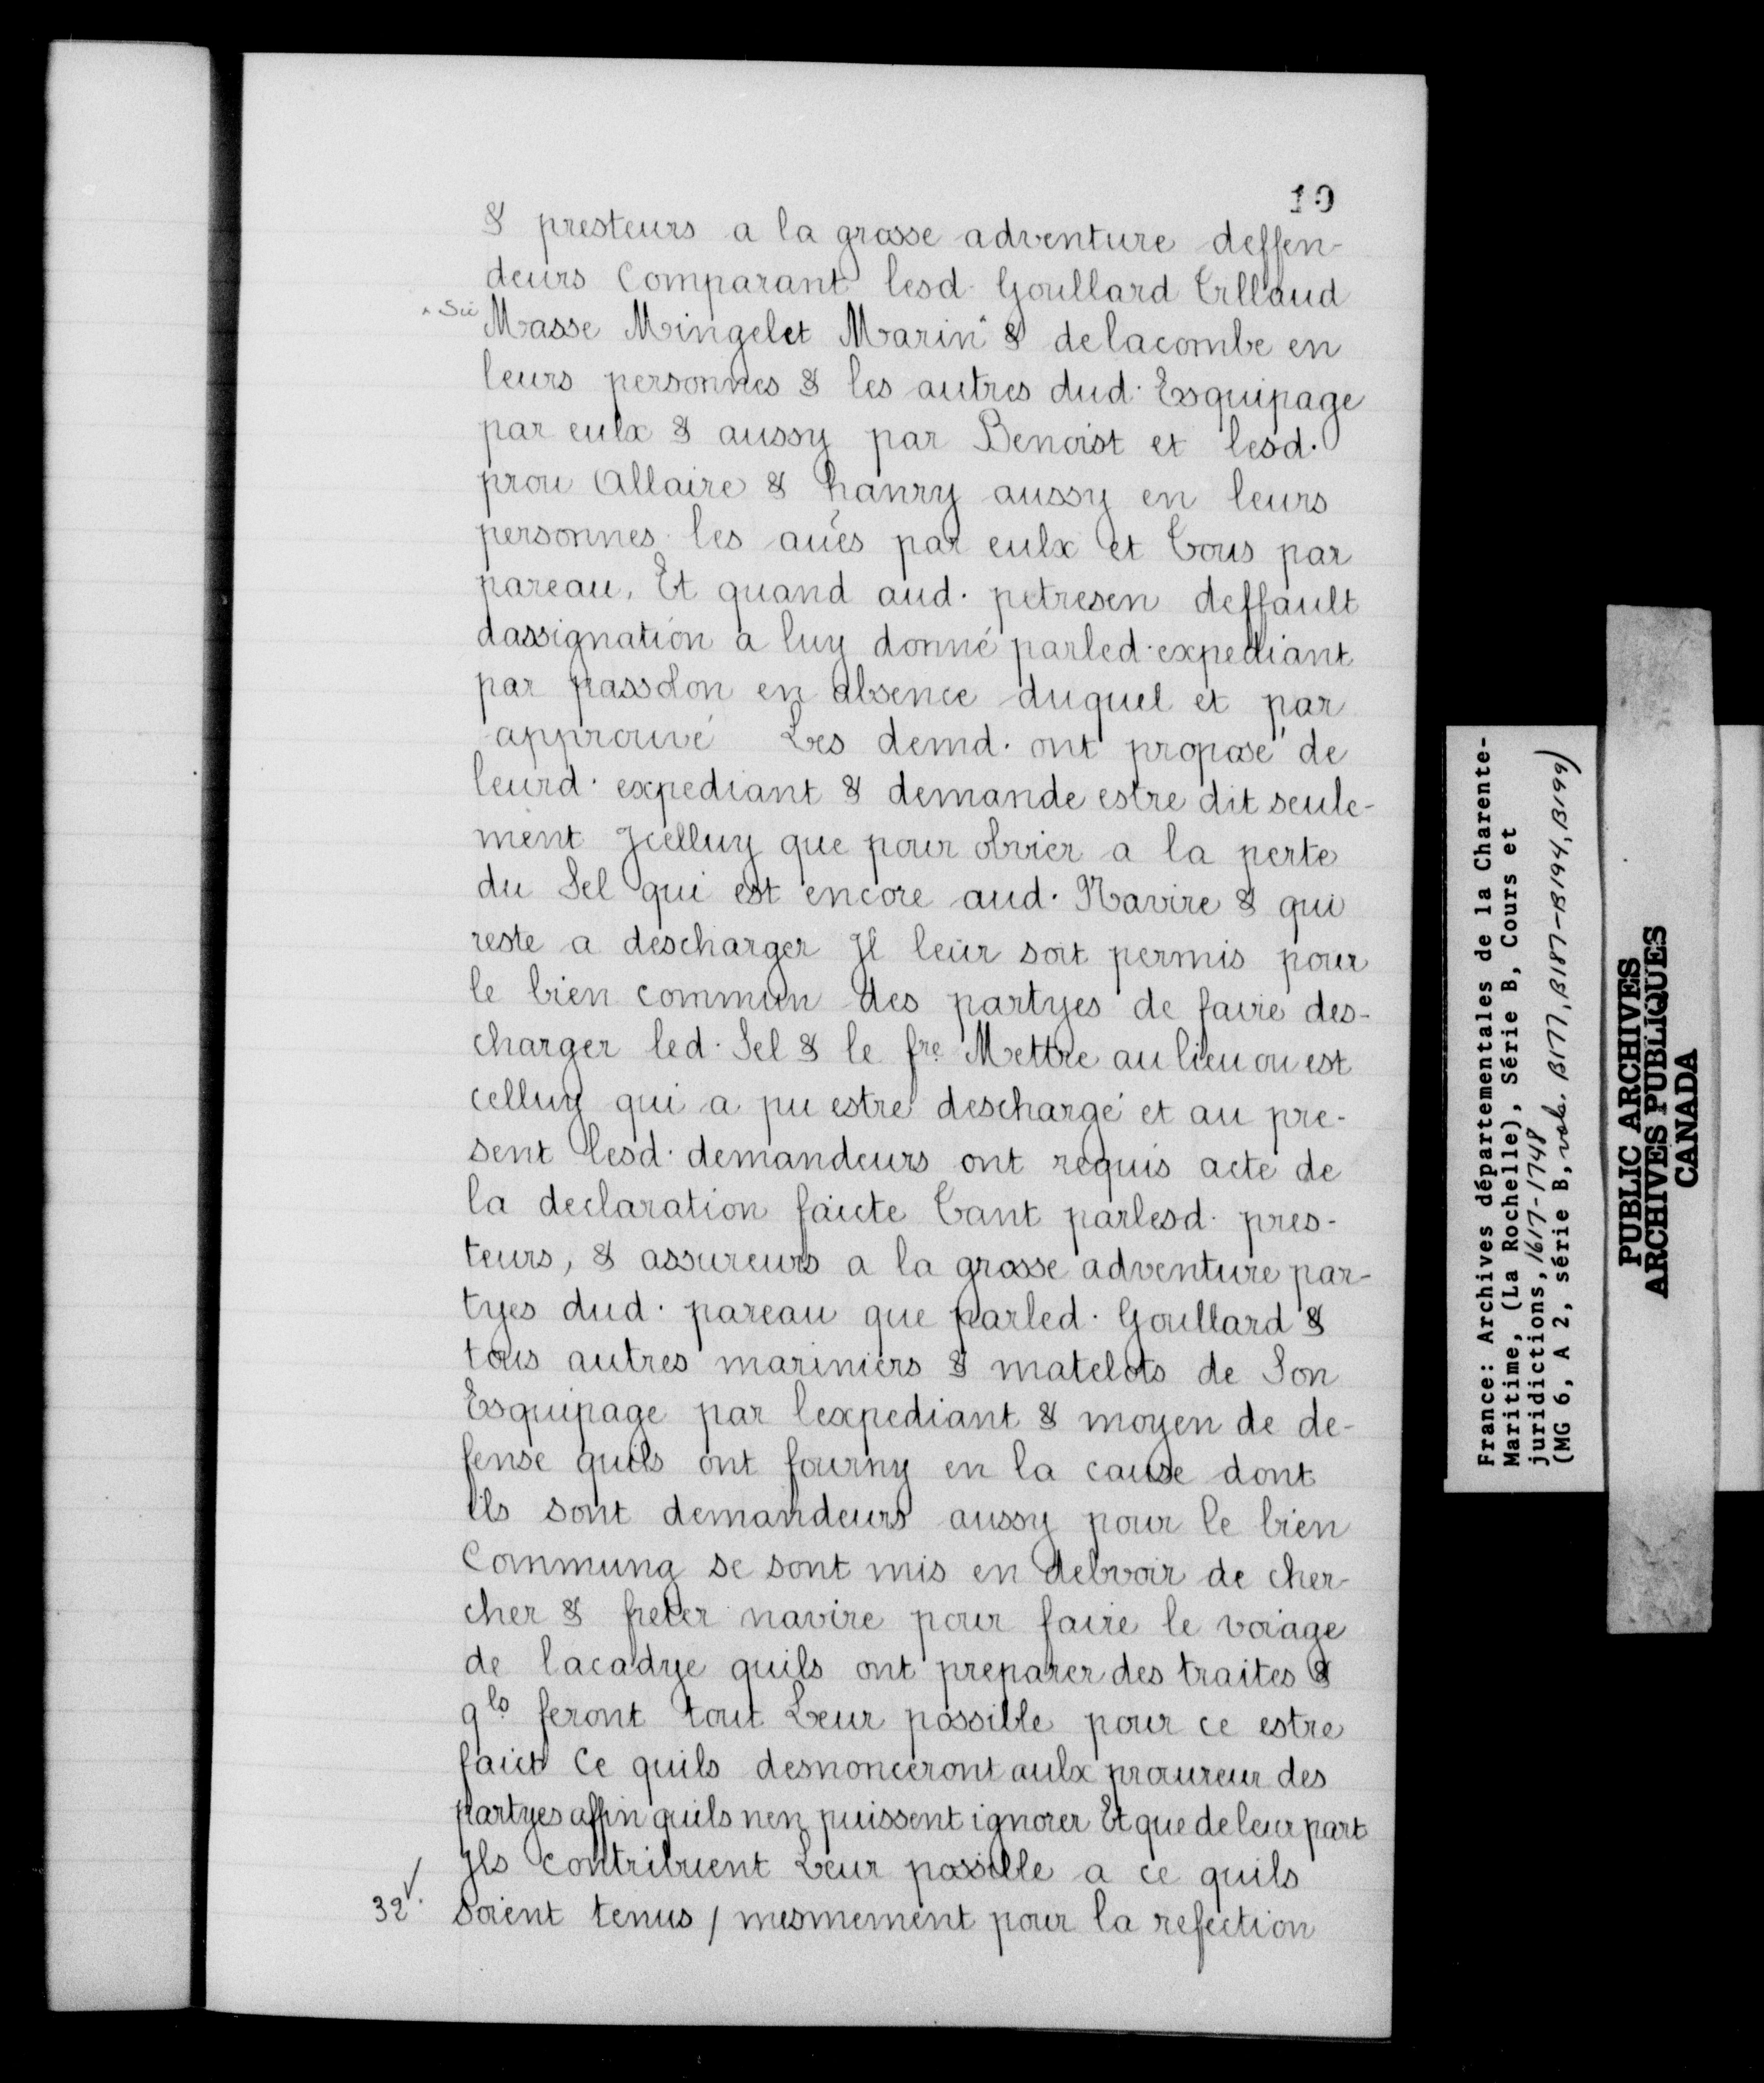 10
& presteurs a la grosse adventure deffen-
deurs Comparant lesd. Goullard Tillaud
* Sic
Masse Mingelet Marin* & delacombe en
leurs personnes & les autres dud. Esquipage
par eulx & aussy par Benoist et lesd.
prou Allaire & hanry aussy en leurs
personnes les aũes par eulx et Tous par
pareau. Et quand aud. petresen deffault
dassignation a luy donné parled. expediant
par passolon en absence duquel et par
approuvé Les demd. ont proposé de
leurd. expediant & demande estre dit seule-
ment Jcelluy que pour obvier a la perte
du Sel qui est encore aud. Navire & qui
reste a descharger Jl leur soit permis pour
le bien commun des partyes de faire des-
charger led. Sel & le fre Mettre au lieu ou est
celluy qui a pu estre deschargé et au pre-
sent lesd. demandeurs ont requis acte de
la declaration faicte Tant parlesd. pres-
teurs, & assureurs a la grosse adventure par-
tyes dud. pareau que parled. Goullard &
tous autres mariniers & matelots de Son
Esquipage par lexpediant & moyen de de-
fense quils ont fourny en la cause dont
ils sont demandeurs aussy pour le bien
Commung se sont mis en debvoir de cher-
cher & freter navire pour faire le voiage
de lacadye quils ont preparer des traites &
qls feront tout Leur possible pour ce estre
faict Ce quils desnonceront aulx proureur des
partyes affin quils nen puissent ignorer Et que de leur part
Jls contribuent Leur possible a ce quils
32 v.
soient tenus / mesmement pour la refection
France: Archives départementales de la Charente-
Maritime, (La Rochelle), Série B, Cours et
juridictions, 1617-1748
(MG 6, A 2, série B, vols. B177, B187-B194, B199)
PUBLIC ARCHIVES
ARCHIVES PUBLIQUES
CANADA